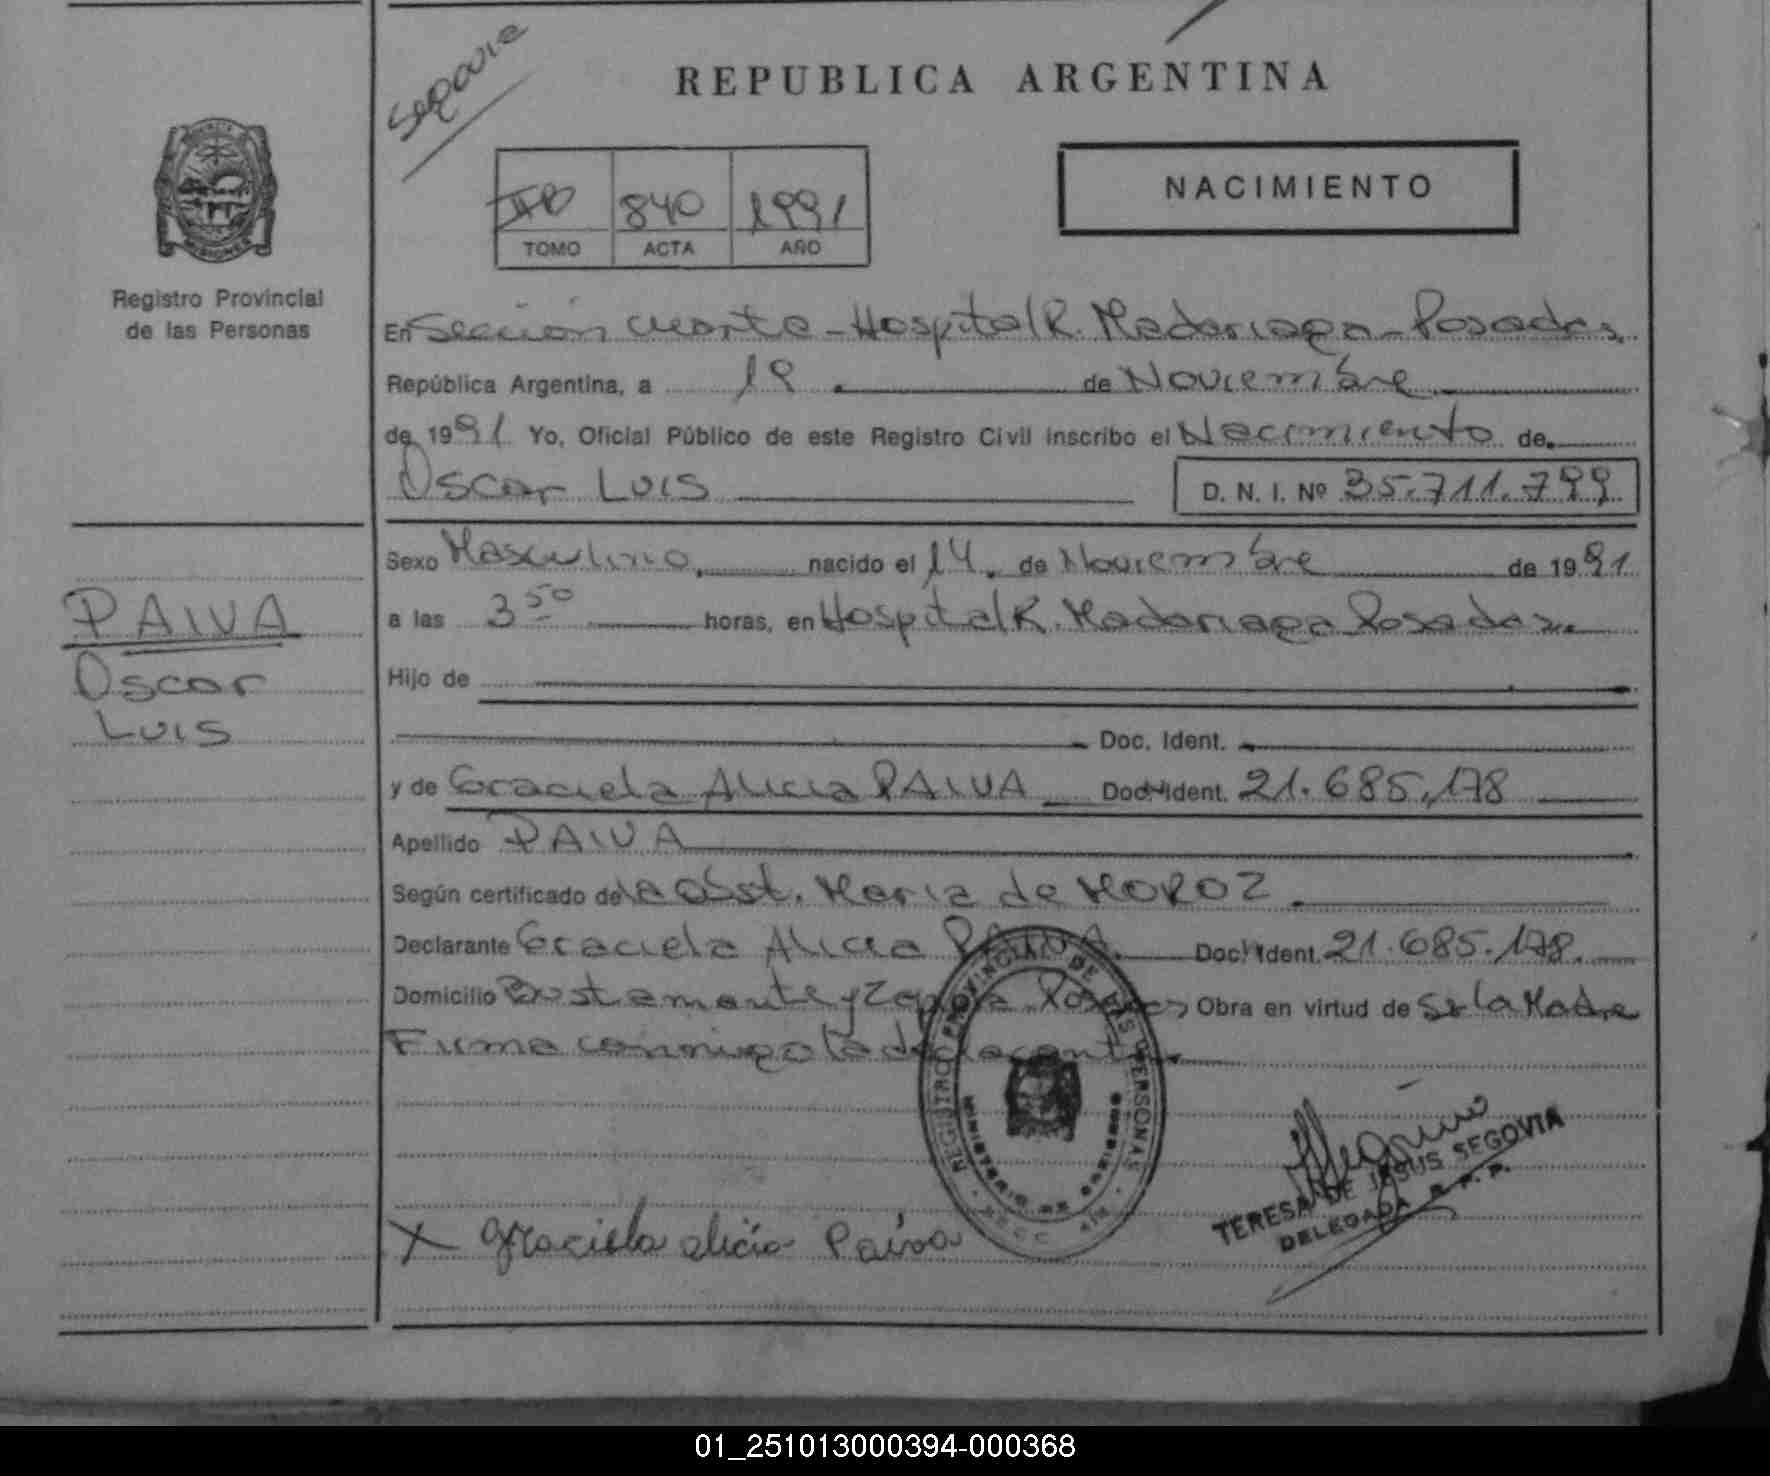 Segovia
REPUBLICA ARGENTINA
NACIMIENTO
840 1991
TOMO ACTA AÑO
MISIONES
Registro Provincial
de las Personas
En Sección cuarta - Hospital R. Madariaga - Posadas.
República Argentina, a 19 de Noviembre
de 1991 Yo, Oficial Público de este Registro Civil inscribo el Nacimiento de
Oscar Luis D. N. I. Nº 35.711.799
Sexo Masculino, nacido el 14. de Noviembre de 1991
a las 3 50 horas, en Hospital R. Madariaga Posadas.
PAIVA
Oscar
Luis
Hijo de
Doc. Ident.
y de Graciela Alicia PAIVA Doc. Ident. 21.685.178
Apellido PAIVA
Según certificado de la obst. Maria de MOROZ
Declarante Graciela Alicia PAIVA. Doc. Ident. 21.685.178.
Domicilio Bustamante y Posadas Obra en virtud de Ser la Madre
Firma conmigo la declarante
REGISTRO PROVINCIAL DE LAS PERSONAS
MINISTERIO DE GOBIERNO
TERESA DE JESUS SEGOVIA
DELEGADA R. P. P.
X Graciela alicia Paiva
01_251013000394-000368